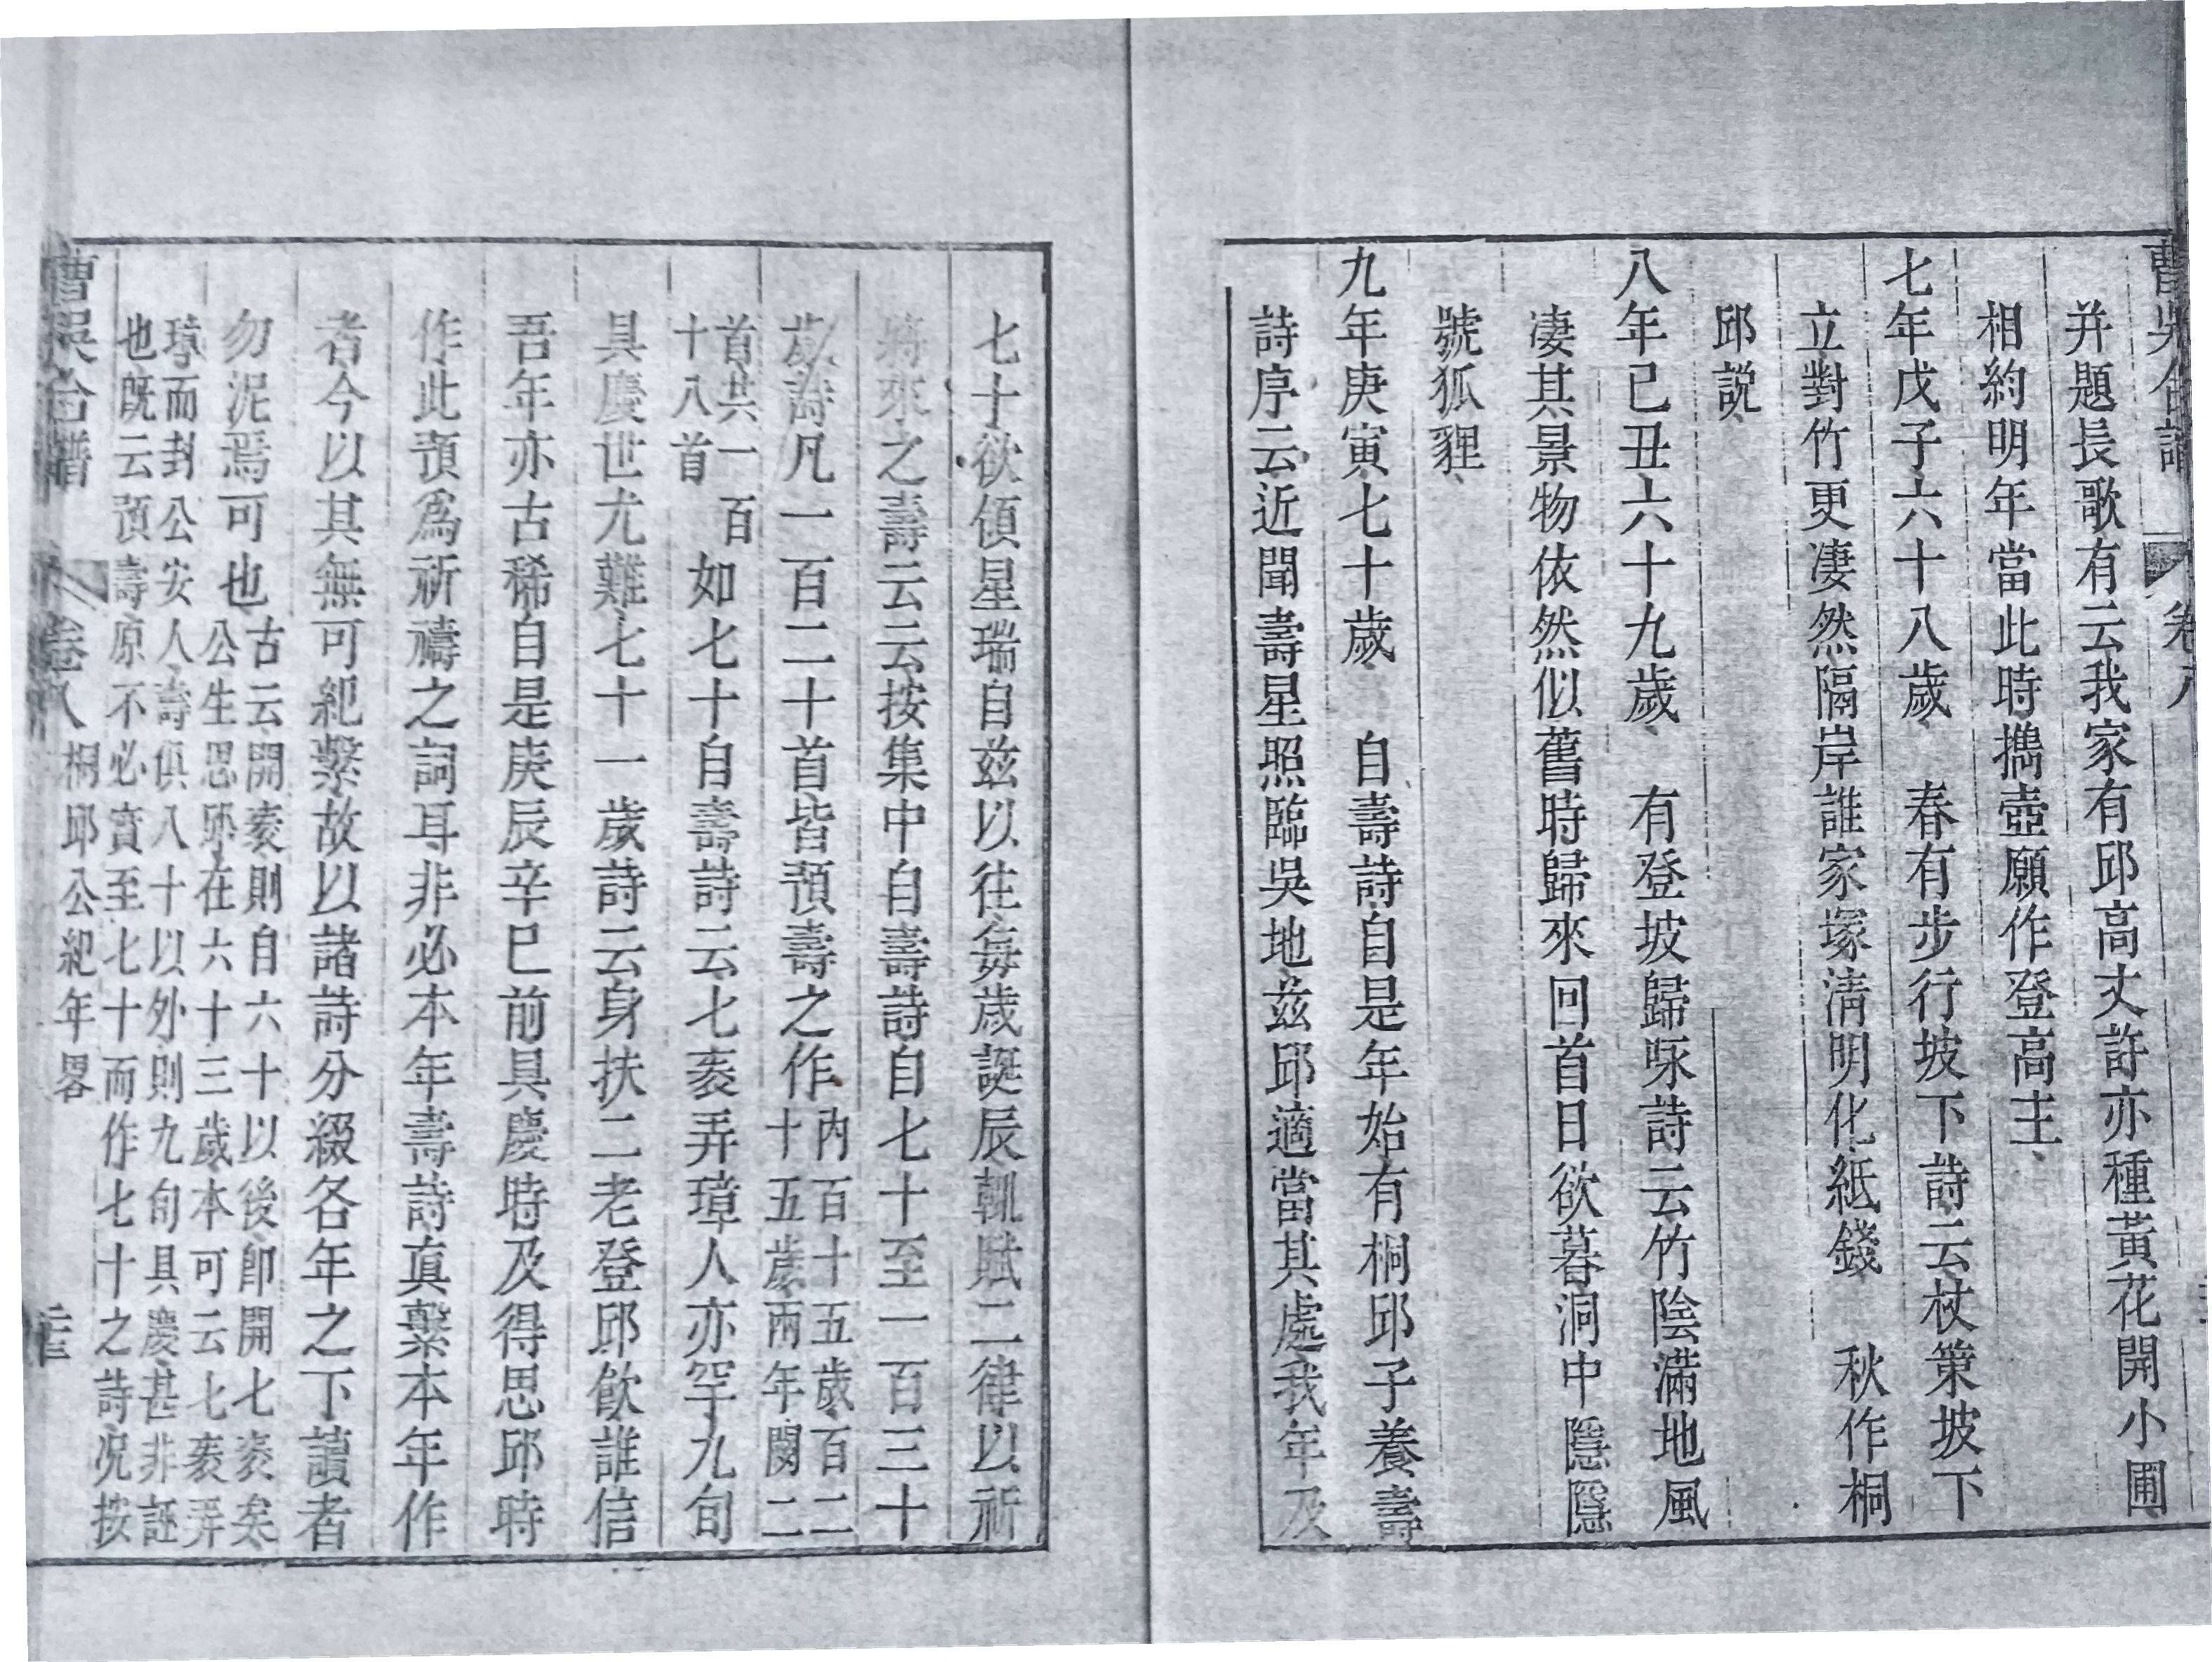 并題長歌有云我家有邱高丈許亦種黃花開小圃
相約明年當此時攜壺願作登高主
七年戊子六十八歲　春有步行坡下詩云杖策坡下
立對竹更凄然隔岸誰家塚淸明化紙錢　秋作桐
邱説
八年己丑六十九歲　有登坡歸咏詩云竹陰滿地風
凄其景物依然似舊時歸來回首日欲暮洞中隱隱
號狐貍
九年庚寅七十歲　自壽詩自是年始有桐邱子養壽
詩序云近聞壽星照臨吳地兹邱適當其處我年及
七十欲傎星瑞自兹以往每歲誕辰輒賦二律以祈
將來之壽云云按集中自壽詩自七十至一百三十
歲詩凡一百二十首皆預壽之作內百十五歲百二
十五歲兩年闕二
首共一百
十八首
如七十自壽詩云七袠弄璋人亦罕九旬
具慶世尤難七十一歲詩云身扶二老登邱飮誰信
吾年亦古稀自是庚辰辛巳前具慶時及得思邱時
作此預爲祈禱之詞耳非必本年壽詩真繫本年作
者今以其無可紀繫故以諸詩分綴各年之下讀者
勿泥焉可也
古云開袠則自六十以後卽開七袠矣
公生思邱在六十三歲本可云七袠弄
璋而封公安人壽俱八十以外則九旬具慶甚非誣
也既云預壽原不必賁至七十而作七十之詩况按
曹吳合譜　卷八　桐邱公紀年畧